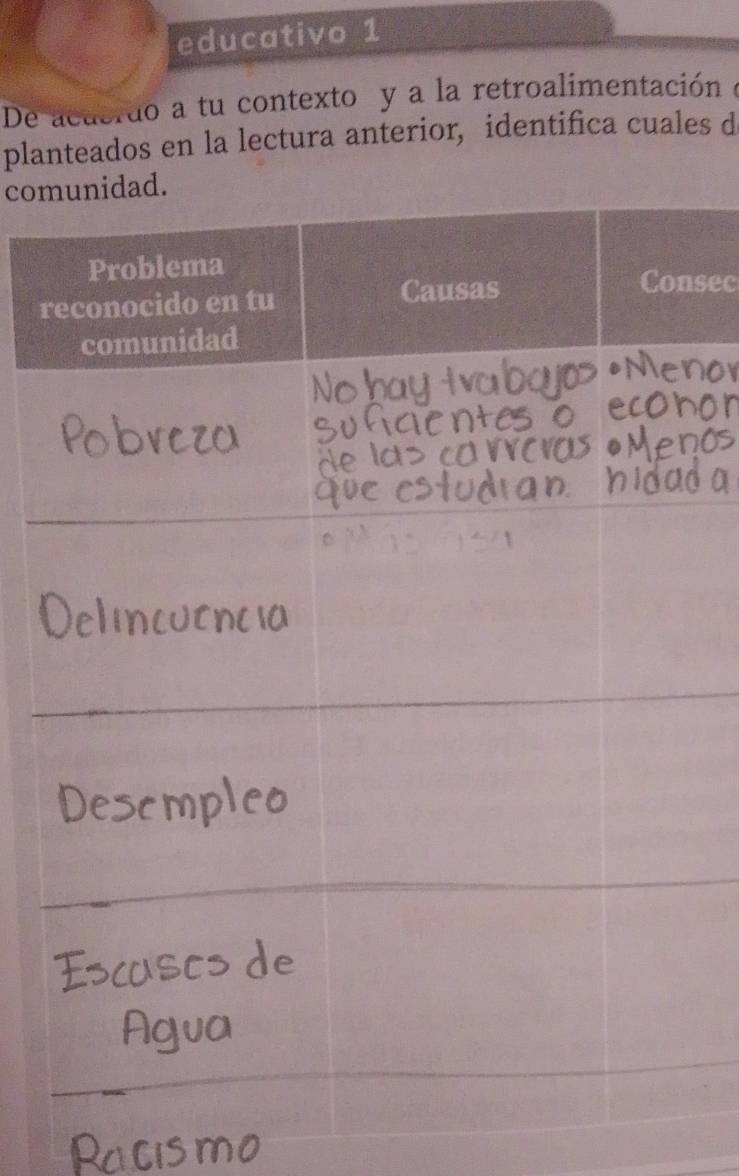 educativo 1
De acuerdo a tu contexto y a la retroalimentación
planteados en la lectura anterior, identifica cuales d
comunidad.
Problema
reconocido en tu
comunidad
Causas
Consec
Pobreza
No hay trabajos
suficientes o
de las carreras
que estudian.
•Menor
econom
•Menos
nidad a
Delincuencia
Desempleo
Escases de
Agua
Racismo